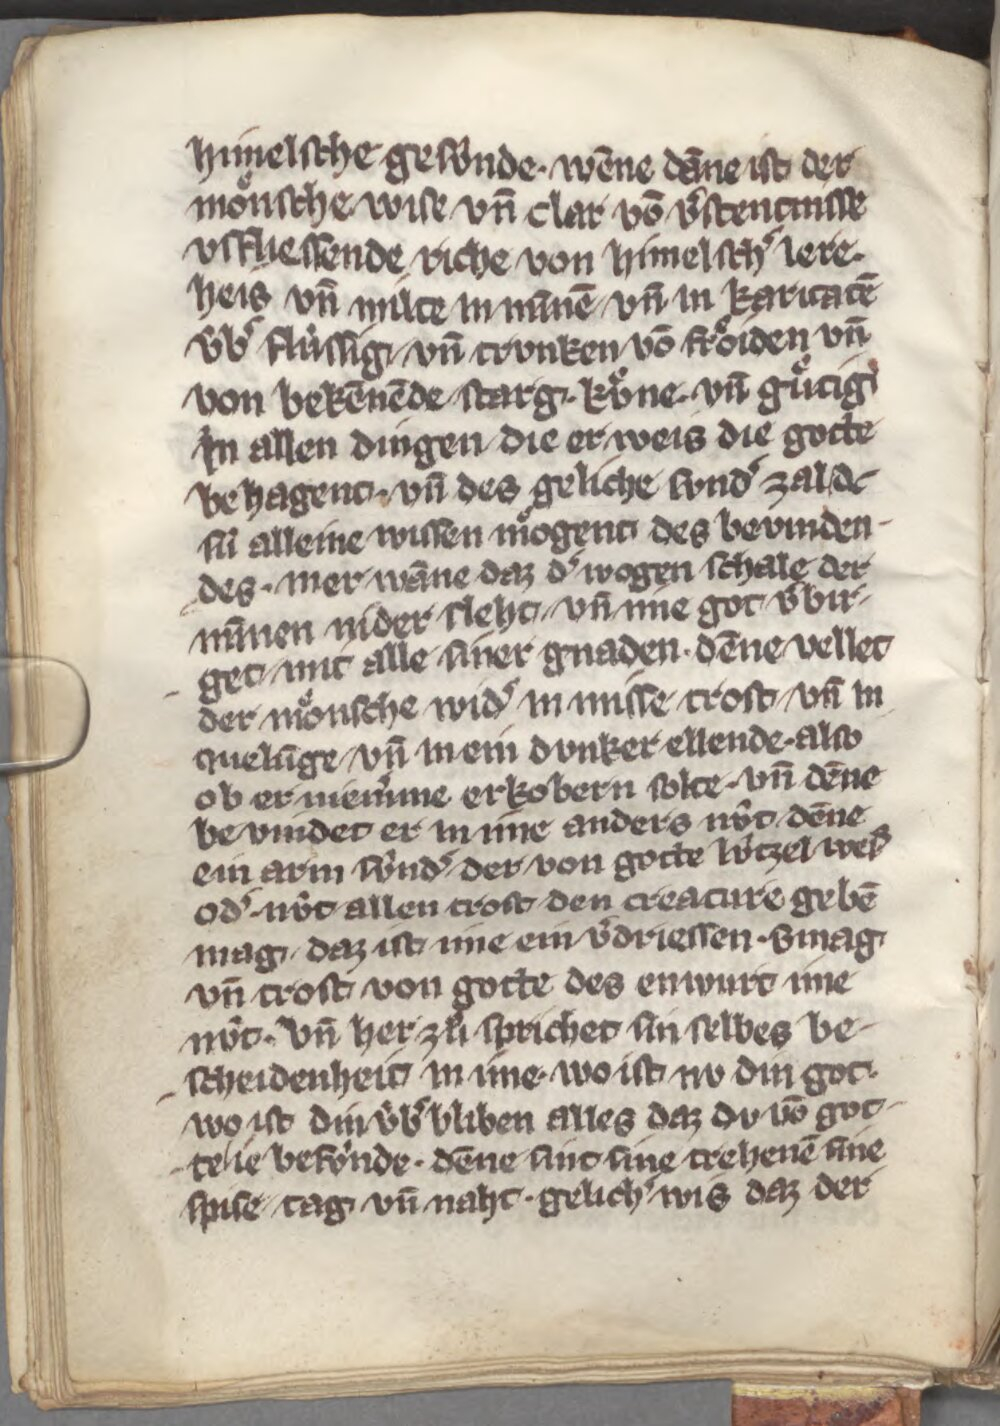 himelsche gesv̂nde · wēne dāne ist der
moͤnsche wise vn̄ clar vō v̾stentnisse
vsfliessende riche von himelsch̾ lere ·
heis vn̄ milte in mīnē vn̄ in karitatē
v̂b̾ flússig vn̄ trvnken vō froͤiden vn̄
von bekēnēde starg · kvͤne · vn̄ guͤtig
In allen dingen die er weis die gotte
behagent · vn̄ des geliche svnd̾ zal d͛
sú alleine wissen moͤgent des bevinden-
des · mer wāne daz d̾ wogen schale der
mīnen nider sleht vn̄ ime got v̾bir-
get mit alle siner gnaden · dēne vellet
der moͤnsche wid̾ in misse trost vn̄ in
quelūge vn̄ in ein dvnker ellende · also
ob er niem̾me erkobern solte · vn̄ dēne
bevindet er in ime anders nv̂t dēne
ein arm sv̂nd̾ der von gotte lv̂tzel weis
od̾ nv̂t allen trost den creature gebē
mag daz ist ime ein v̾driessen · Smag
vn̄ trost von gotte des enwurt ime
nv̂t · Vn̄ her zuͦ sprichet sin selbes be-
scheidenheit in ime · wo ist nv din got ·
wo ist din v̂b̾bliben alles daz dv vō got-
te ie befv̂nde · dēne sint sine trehenē sine
spise tag vn̄ naht · gelich̾ wis daz der